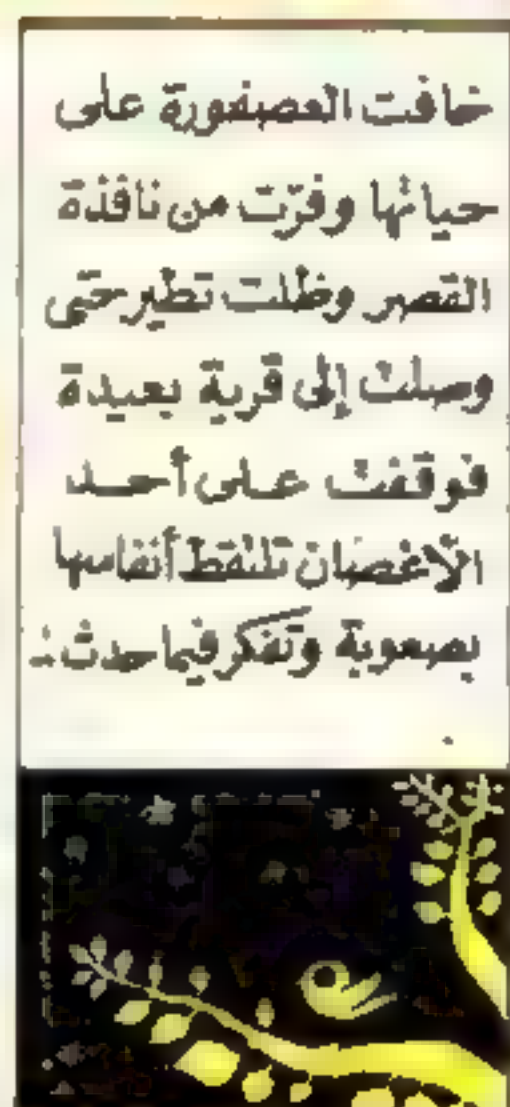 خافت العصفورة على
حياتها وفرّت من نافذة
القصر وظلت تطير حتى
وصلت إلى قرية بعيدة
فوقفت على أحد
الأغصان تلتقط أنفاسها
بصعوبة وتفكر فيما حدث :
.